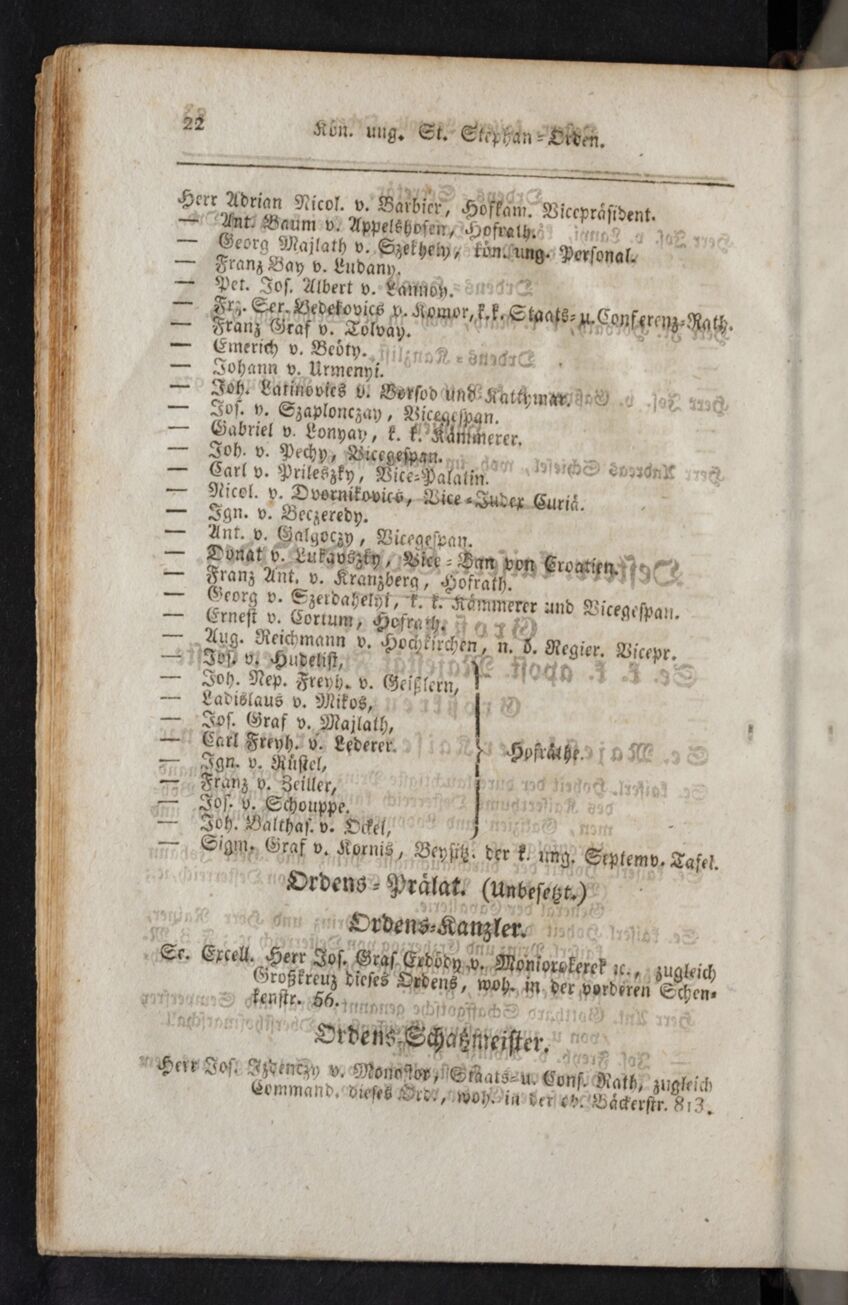 22
Kön. ung. St. Stephan-Orden.
Herr Adrian Nicol. v. Barbier, Hofkam. Vicepräsident.
— Ant. Baum v. Appelshofen, Hofrath.
— Georg Majlath v. Szekhely, kön. ung. Personal.
— Franz Bay v. Ludany.
— Pet. Jos. Albert v. Lannoy.
— Frz. Ser. Bedekovics v. Komor, k.k. Staats- u. Conferenz-Rath.
— Franz Graf v. Tolvay.
— Emerich v. Beöty.
— Johann v. Urmenyi.
— Joh. Latinovics v. Borsod und Kattymar.
— Jos. v. Szaplonczay, Vicegespan.
— Gabriel v. Lonyay, k. k. Kämmerer.
— Joh. v. Pechy, Vicegespan.
— Carl v. Prileszky, Vice-Palatin.
— Nicol. v. Dvornikovics, Vice-Judex Curiä.
— Ign. v. Beczeredy.
— Ant. v. Galgoczy, Vicegespan.
— Donat v. Lukavszky, Vice-Ban von Croatien.
— Franz Ant. v. Kranzberg, Hofrath.
— Georg v. Szerdahelyi, k. k. Kämmerer und Vicegespan.
— Ernest v. Cortum, Hofrath.
— Aug. Reichmann v. Hochkirchen, n. ö. Regier. Vicepr.
— Jos. v. Hudelist,
— Joh. Nep. Freyh. v. Geißlern,
— Ladislaus v. Mikos,
— Jos. Graf v. Majlath,
— Carl Freyh. v. Lederer. Hofräthe.
— Ign. v. Rüstel,
— Franz v. Zeiller,
— Jos. v. Schouppe.
— Joh. Balthas. v. Ockel,
— Sigm. Graf v. Kornis, Beysitz. der k. ung. Septemv. Tafel.
Ordens-Prälat. (Unbesetzt.)
Ordens-Kanzler.
Se. Excell. Herr Jos. Graf Erdödy v. Moniorokerek ꝛc., zugleich
Großkreuz dieses Ordens, woh. in der vorderen Schen-
kenstr. 56.
Ordens-Schatzmeister.
Herr Jos. Izdenczy v. Monostor, Staats- u. Conf. Rath, zugleich
Command. dieses Ord., woh. in der ob. Bäckerstr. 813.